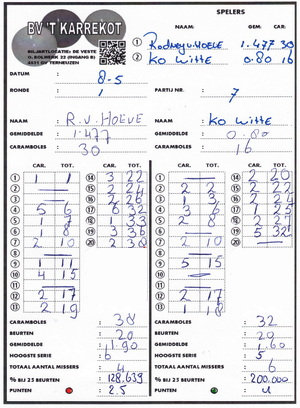 SPELERS
BV 'T KARREKOT
BILJARTLOCATIE: DE VESTE
O. BOLWERK 22 (INGANG B)
4531 GV TERNEUZEN
NAAM: GEM: CAR:
1 Rodney v. Hoeve 1.477 30
2 Ko Witte 0.80 16
DATUM 8-5
RONDE 1 PARTIJ NR. 7
NAAM R.v. HOEVE NAAM Ko Witte
GEMIDDELDE 1.477 GEMIDDELDE 0.80
CARAMBOLES 30 CARAMBOLES 16
CAR. TOT. CAR. TOT. CAR. TOT. CAR. TOT.
1 1 1 14 3 22 1 14 2 20
2 15 2 24 2 2 2 15
3 16 2 26 3 1 3 16
4 5 6 17 6 32 4 17
5 1 7 18 1 33 5 2 8 18
6 1 8 19 3 36 6 19 5 32
7 2 10 20 2 38 7 2 10 20
8 8
9 1 11 9 5 15
10 4 15 10
11 11
12 2 17 12 2 17
13 2 19 13 1 18
CARAMBOLES 38 CARAMBOLES 32
BEURTEN 20 BEURTEN 20
GEMIDDELDE 1.90 GEMIDDELDE 1.60
HOOGSTE SERIE 6 HOOGSTE SERIE 5
TOTAAL AANTAL MISSERS 4 TOTAAL AANTAL MISSERS 6
% BIJ 25 BEURTEN 128.639 % BIJ 25 BEURTEN 200.000
PUNTEN 2.5 PUNTEN 4